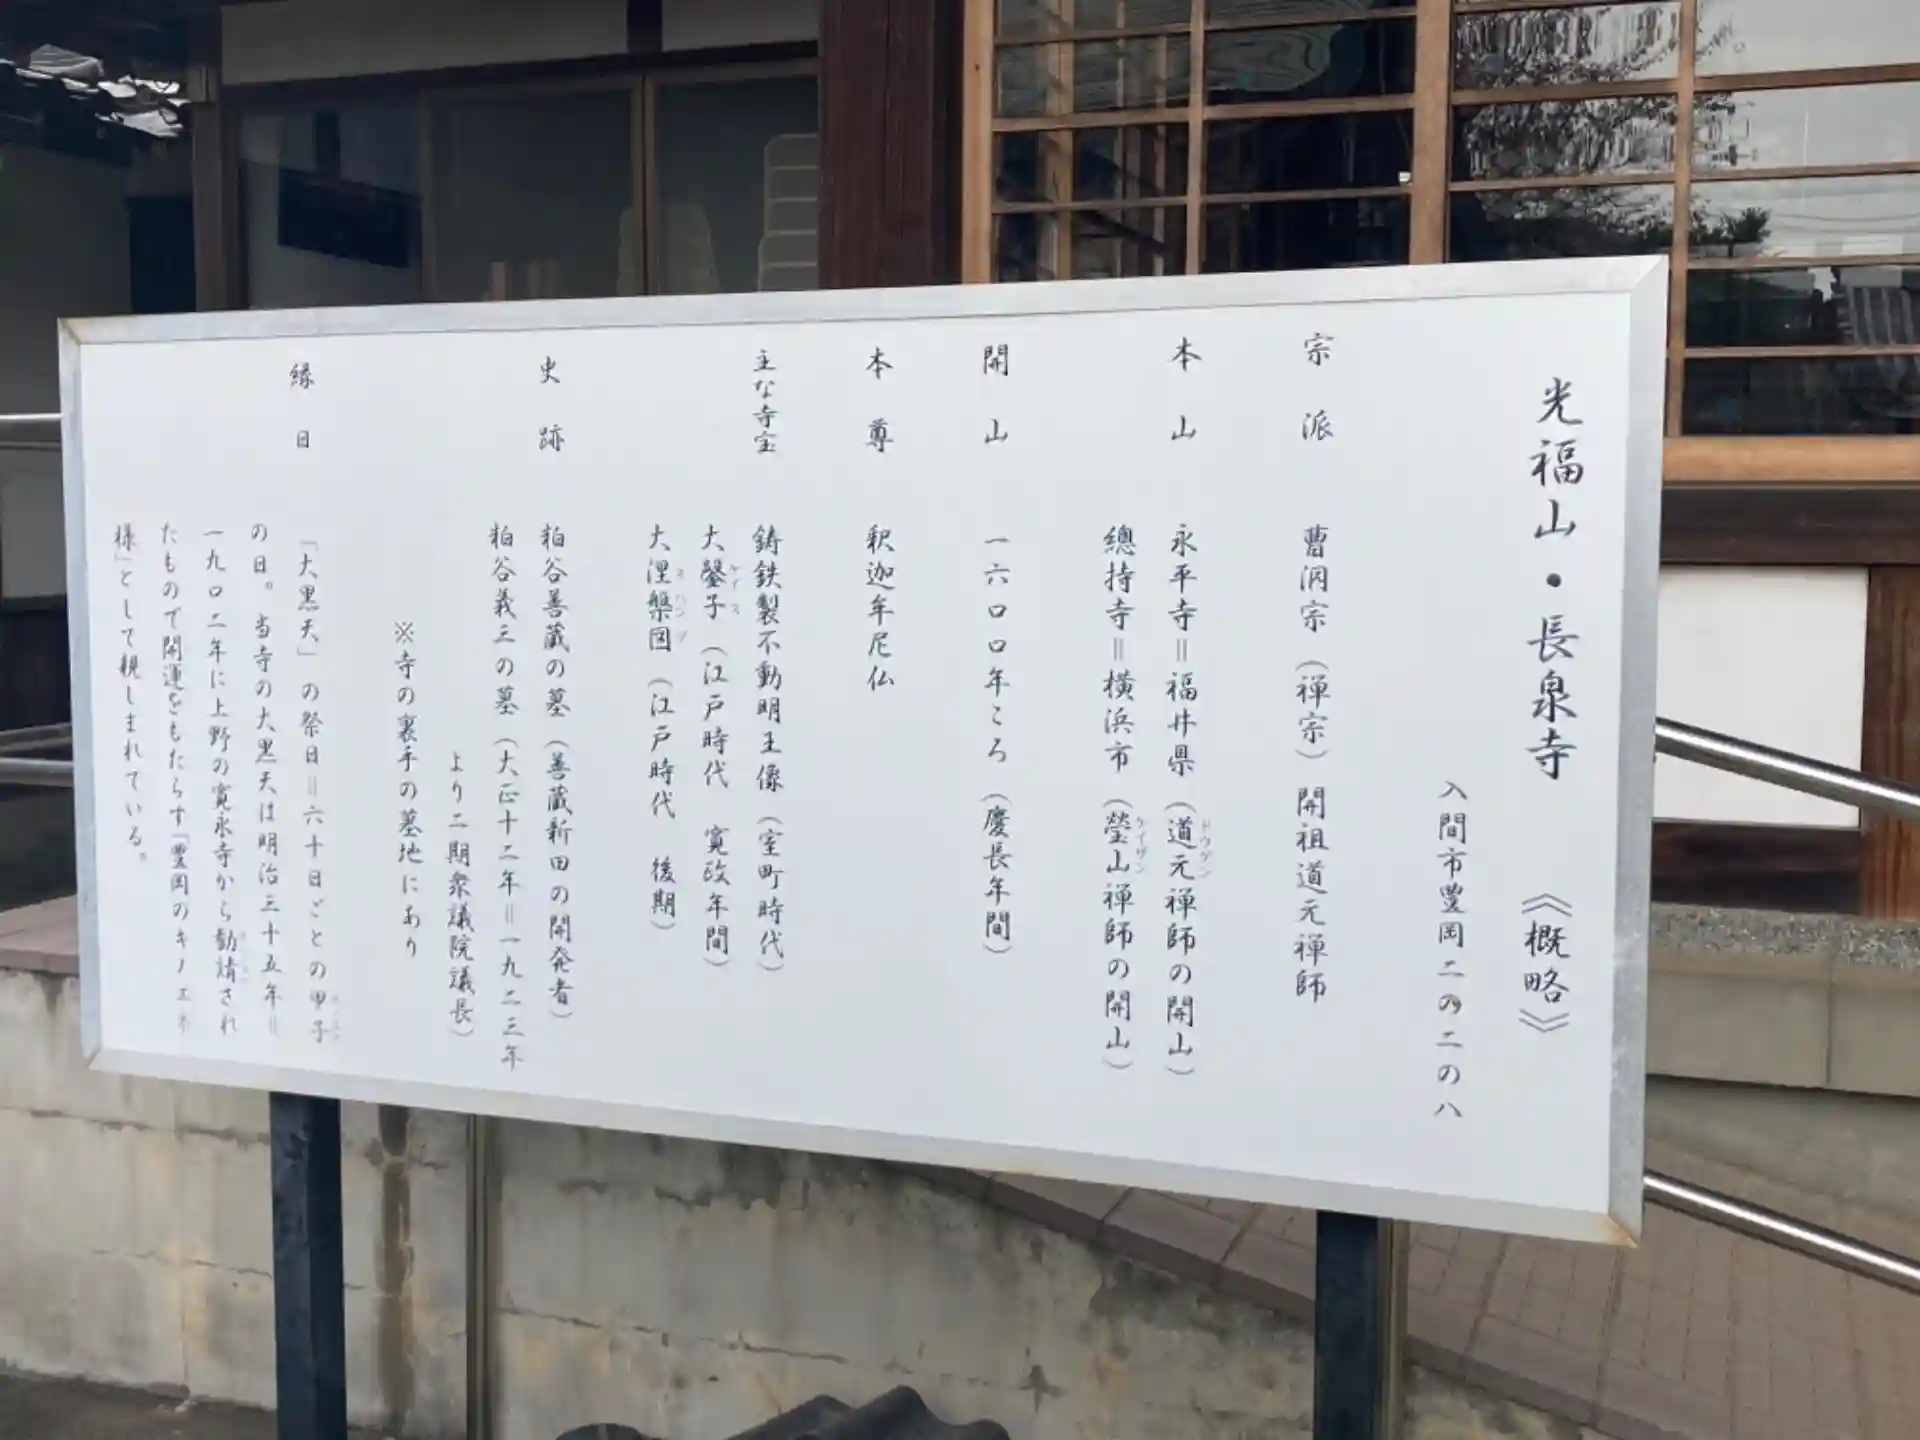 光福山・長泉寺 《概略》
入間市豊岡二の二の八
宗派 曹洞宗（禅宗）開祖道元禅師
本山 永平寺＝福井県（道元禅師の開山）
ドウゲン
總持寺＝横浜市（瑩山禅師の開山）
ケイザン
開山 一六〇〇年ころ（慶長年間）
本尊 釈迦牟尼仏
主な寺宝 鋳鉄製不動明王像（室町時代）
大鏧子（江戸時代 寛政年間）
ケイス
大涅槃図（江戸時代 後期）
ネハンヅ
史跡 粕谷善蔵の墓（善蔵新田の開発者）
粕谷義三の墓（大正十二年＝一九二三年
より二期衆議院議長）
※寺の裏手の墓地にあり
縁日 「大黒天」の祭日＝六十日ごとの甲子
の日。当寺の大黒天は明治三十五年＝
一九〇二年に上野の寛永寺から勧請され
たもので開運をもたらす「豊岡のキノエネ
様」として親しまれている。